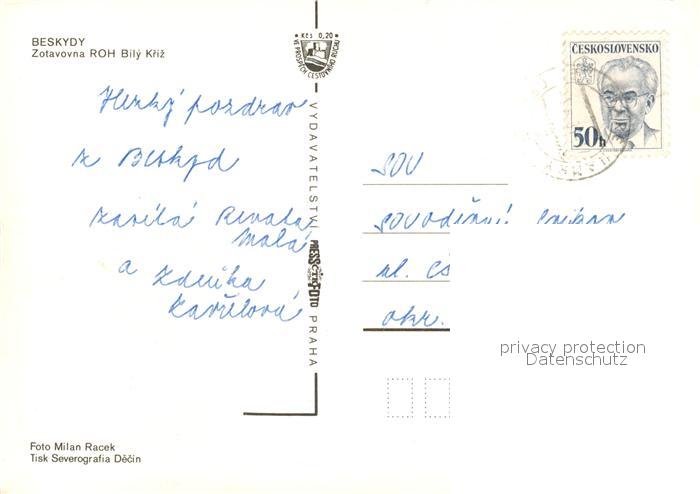 BESKYDY
Zotavovna ROH Bílý Kříž
Kčs 0,20
VE PROSPĚCH CESTOVNÍHO RUCHU
ČESKOSLOVENSKO
50h
Hezký pozdrav
z Beskyd
zasílá Renata
Malá
a Zdeňka
Karělová
VYDAVATELSTVÍ PRESSFOTO PRAHA
SOU
ul. čs
okr.
privacy protection
Datenschutz
Foto Milan Racek
Tisk Severografia Děčín